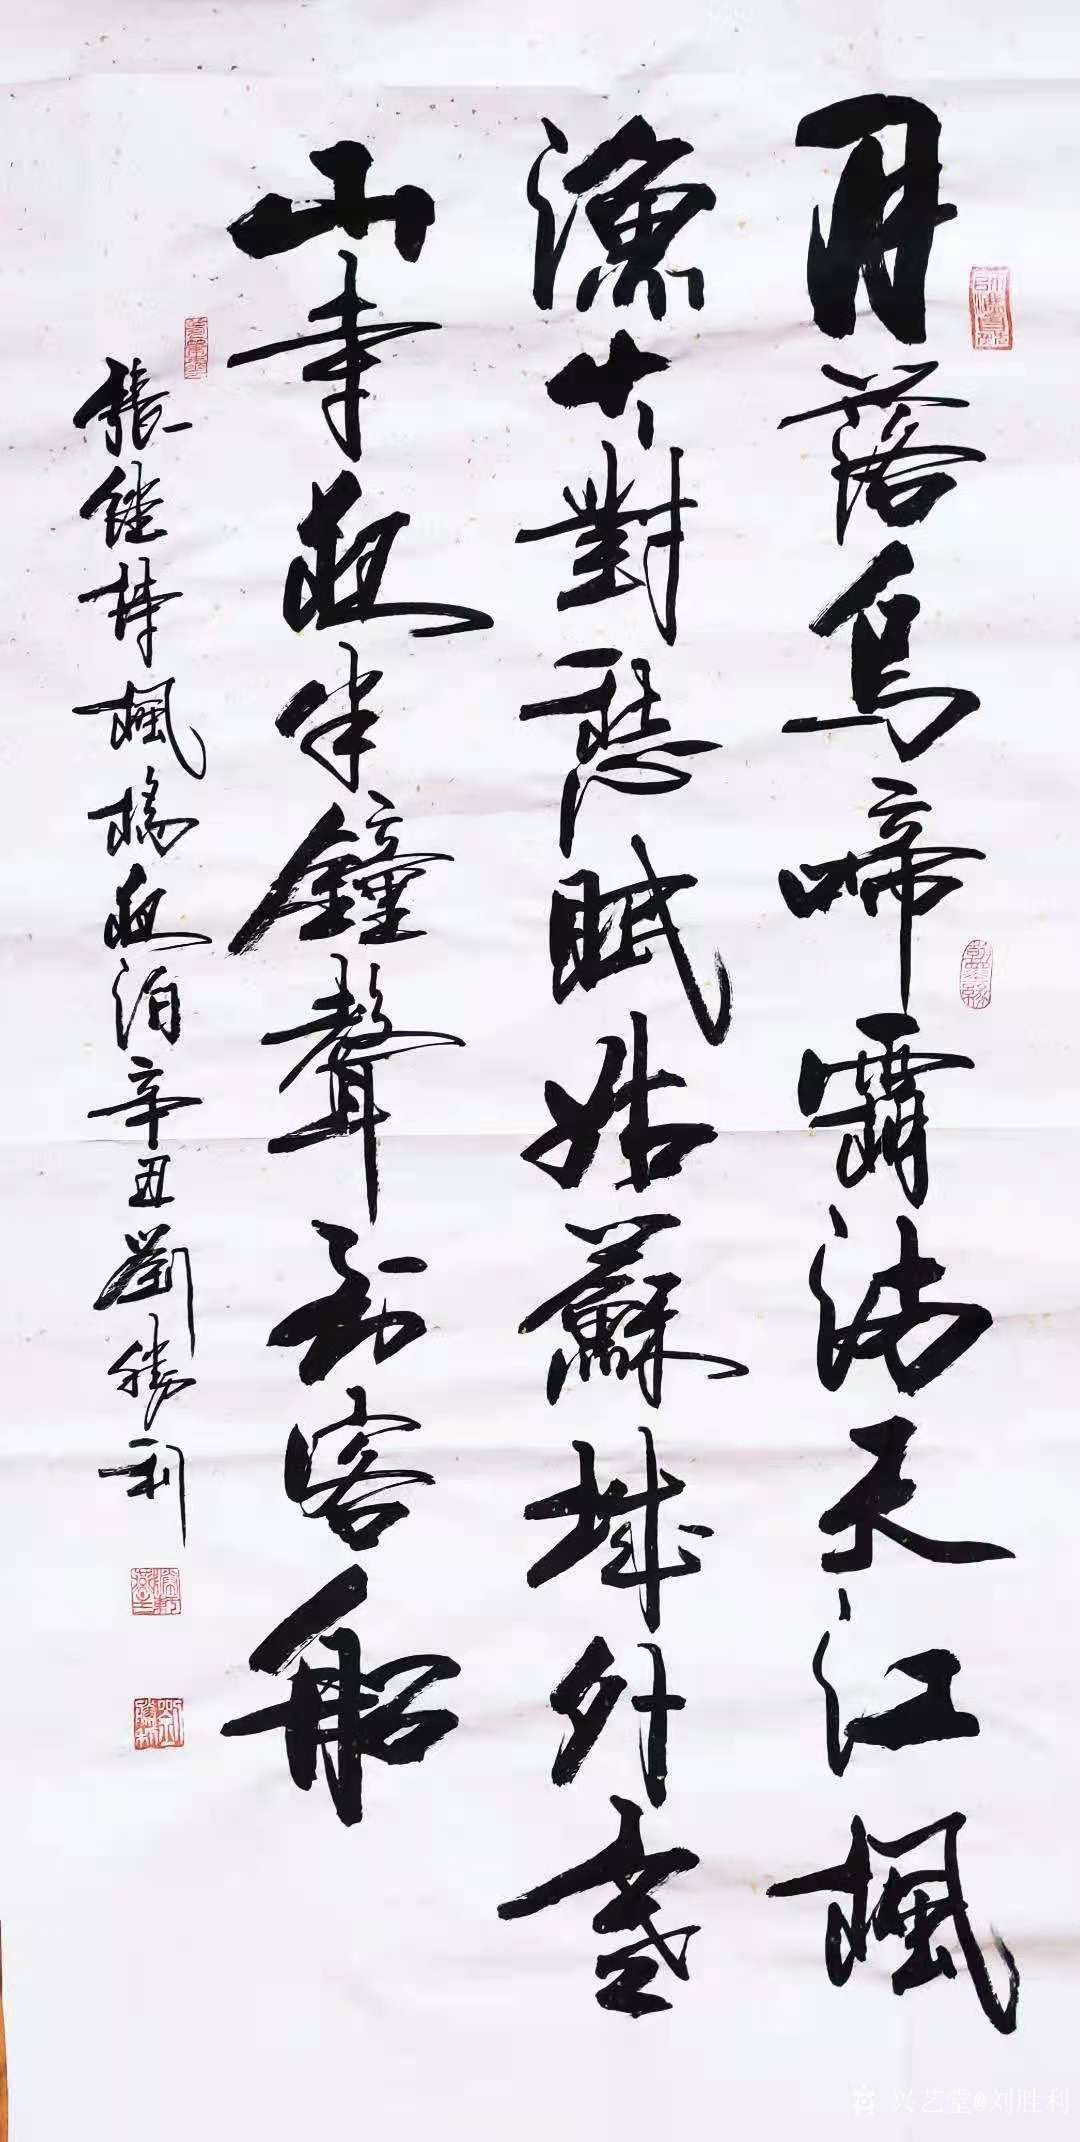 月落烏啼霜滿天江楓
漁火對愁眠姑蘇城外寒
山寺夜半鐘聲到客船
張繼詩楓橋夜泊辛丑劉勝利
翰墨緣
劉勝利
兴艺堂@刘胜利